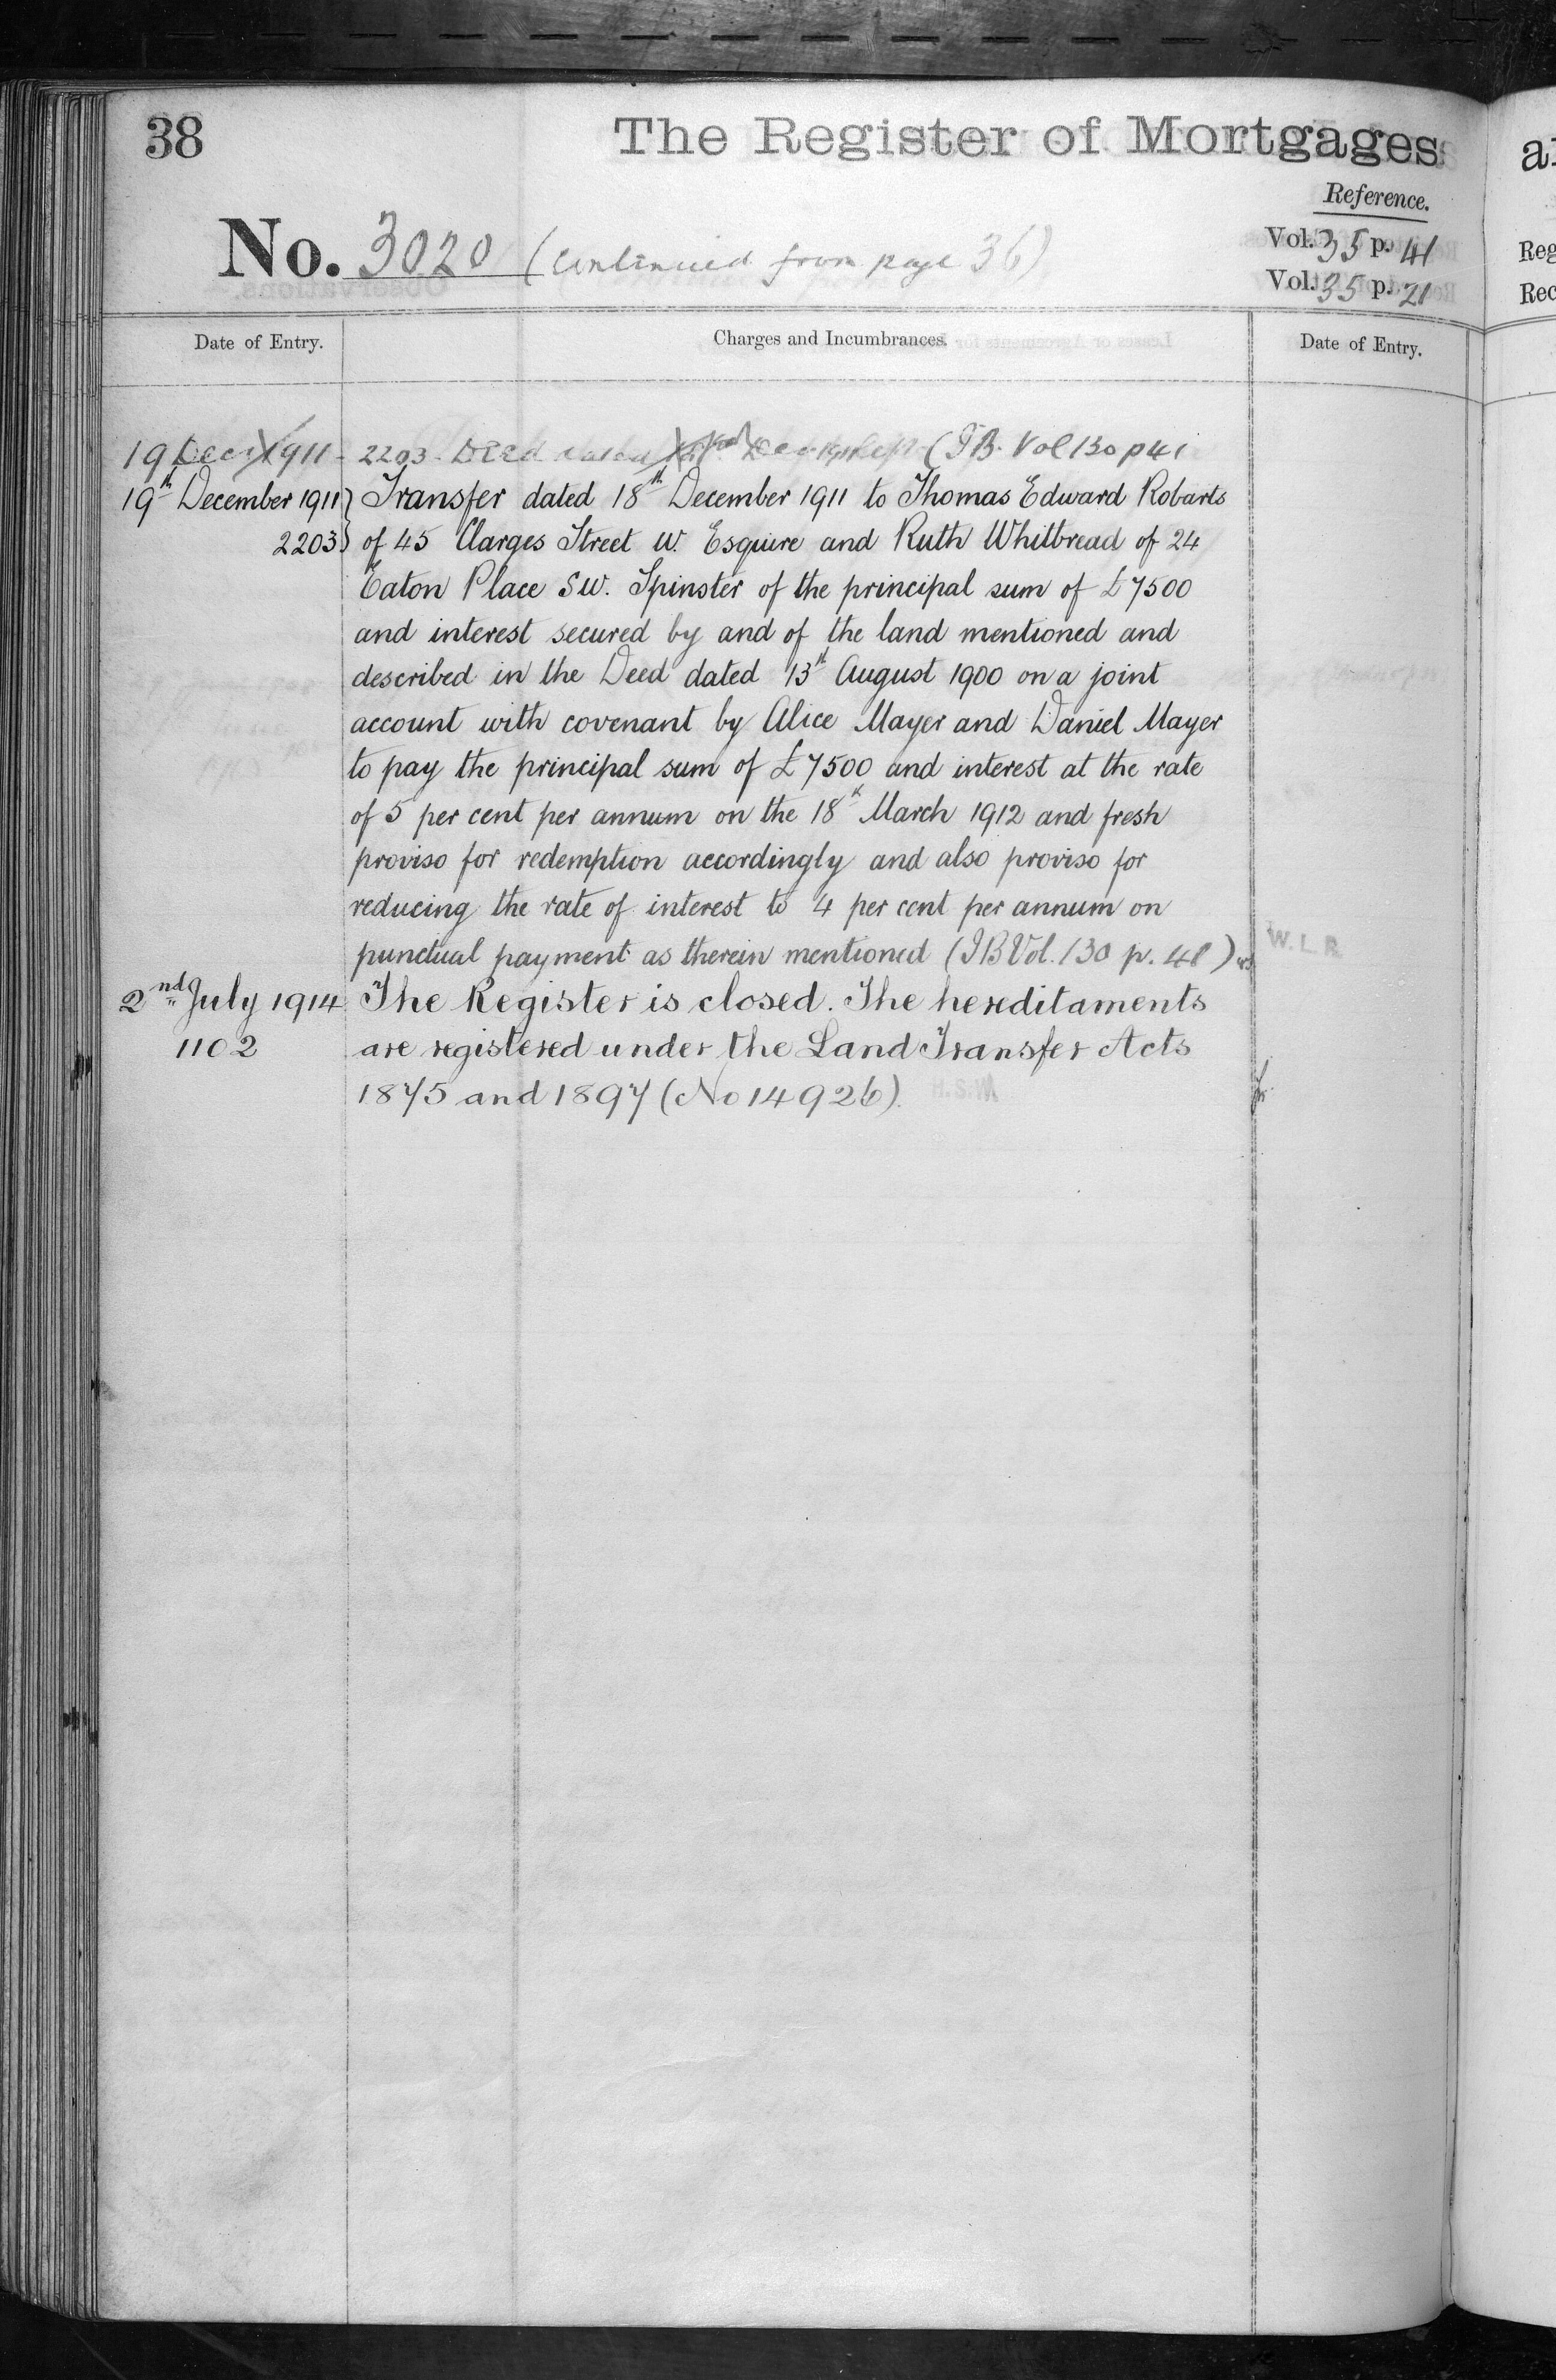 38
The Register of Mortgages
Reference.
No. 3020 (continued from page 36)
Vol. 35 p. 41
Vol. 35 p. 21
Reg
Rec
Date of Entry.
Charges and Incumbrances.
Date of Entry.
19 Dec 1911 - 2203. Deed dated Dec 1911 (IB. Vol 130 p 41
19th December 1911 Transfer dated 18th December 1911 to Thomas Edward Robarts
2203 of 45 Clarges Street W. Esquire and Ruth Whitbread of 24
Eaton Place SW. Spinster of the principal sum of £7500
and interest secured by and of the land mentioned and
described in the Deed dated 13th August 1900 on a joint
account with covenant by Alice Mayer and Daniel Mayer
to pay the principal sum of £7500 and interest at the rate
of 5 per cent per annum on the 18th March 1912 and fresh
proviso for redemption accordingly and also proviso for
reducing the rate of interest to 4 per cent per annum on
punctual payment as therein mentioned (IB Vol. 130 p. 41) W.L.R.
2nd July 1914 The Register is closed. The hereditaments
1102 are registered under the Land Transfer Acts
1875 and 1897 (No 14926). H.S.M